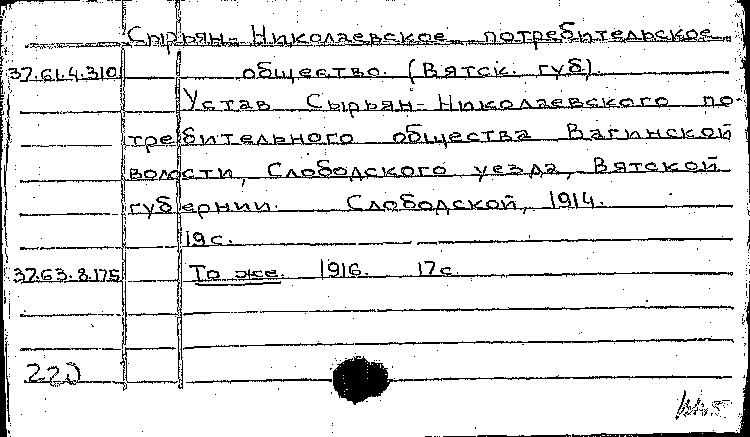 Сырьян-Николаевское потребительское
37.61.4.310 общество. (Вятск. губ).
Устав Сырьян-Николаевского по-
требительного общества Вагинской
волости, Слободского уезда, Вятской
губернии. Слободской, 1914.
19с.
37.63.8.175 То же. 1916. 17с.
220